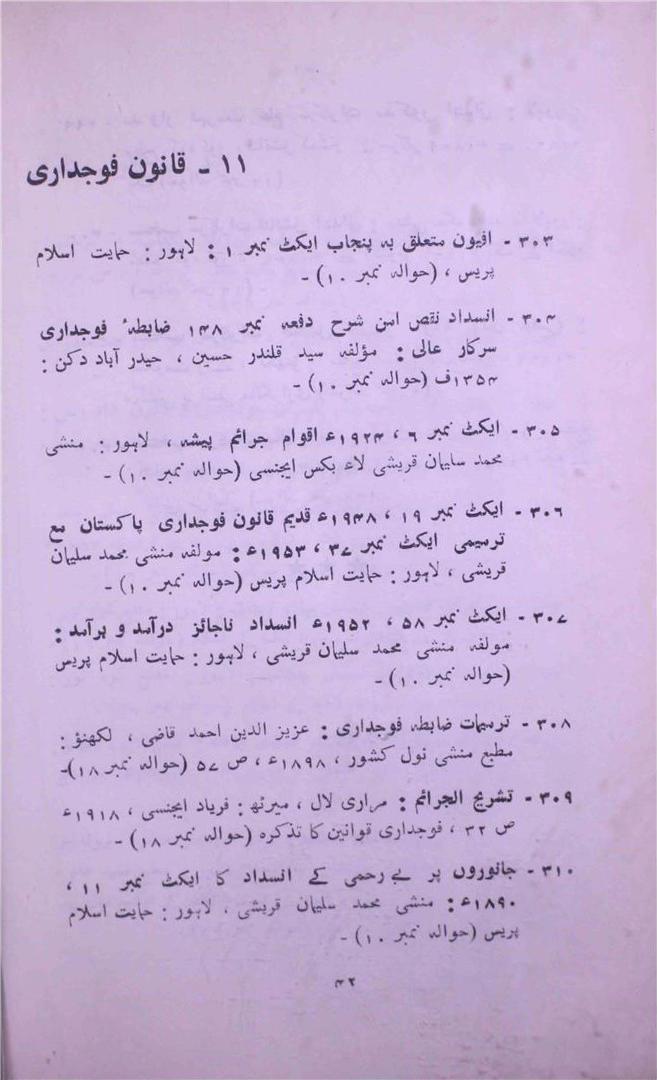 ۱۱ - قانون فوجداری
۳۰۳ - افیون متعلق بہ پنجاب ایکٹ نمبر ۱ : لاہور : حمایت اسلام
پریس ، (حوالہ نمبر ۱۰) -
۳۰۴ - انسداد نقص امن شرح دفعہ نمبر ۱۴۸ ضابطۂ فوجداری
سرکار عالی : مؤلفہ سید قلندر حسین ، حیدر آباد دکن :
۱۳۵۴ف (حوالہ نمبر ۱۰) -
۳۰۵ - ایکٹ نمبر ۶ ، ۱۹۲۴ء اقوام جرائم پیشہ ، لاہور : منشی
محمد سلیمان قریشی لاء بکس ایجنسی (حوالہ نمبر ۱۰) -
۳۰۶ - ایکٹ نمبر ۱۹ ، ۱۹۴۸ء قدیم قانون فوجداری پاکستان مع
ترمیمی ایکٹ نمبر ۳۷ ، ۱۹۵۳ء : مولفہ منشی محمد سلیمان
قریشی ، لاہور : حمایت اسلام پریس (حوالہ نمبر ۱۰) -
۳۰۷ - ایکٹ نمبر ۵۸ ، ۱۹۵۲ء انسداد ناجائز درآمد و برآمد :
مولفہ منشی محمد سلیمان قریشی ، لاہور : حمایت اسلام پریس
(حوالہ نمبر ۱۰) -
۳۰۸ - ترمیمات ضابطہ فوجداری : عزیز الدین احمد قاضی ، لکھنؤ :
مطبع منشی نول کشور ، ۱۸۹۸ء ، ص ۵۷ (حوالہ نمبر ۱۸)-
۳۰۹ - تشریح الجرائم : مراری لال ، میرٹھ : فریاد ایجنسی ، ۱۹۱۸ء
ص ۳۲ ، فوجداری قوانین کا تذکرہ (حوالہ نمبر ۱۸) -
۳۱۰ - جانوروں پر بے رحمی کے انسداد کا ایکٹ نمبر ۱۱ ،
۱۸۹۰ء : منشی محمد سلیمان قریشی ، لاہور : حمایت اسلام
پریس (حوالہ نمبر ۱۰) -
۴۲